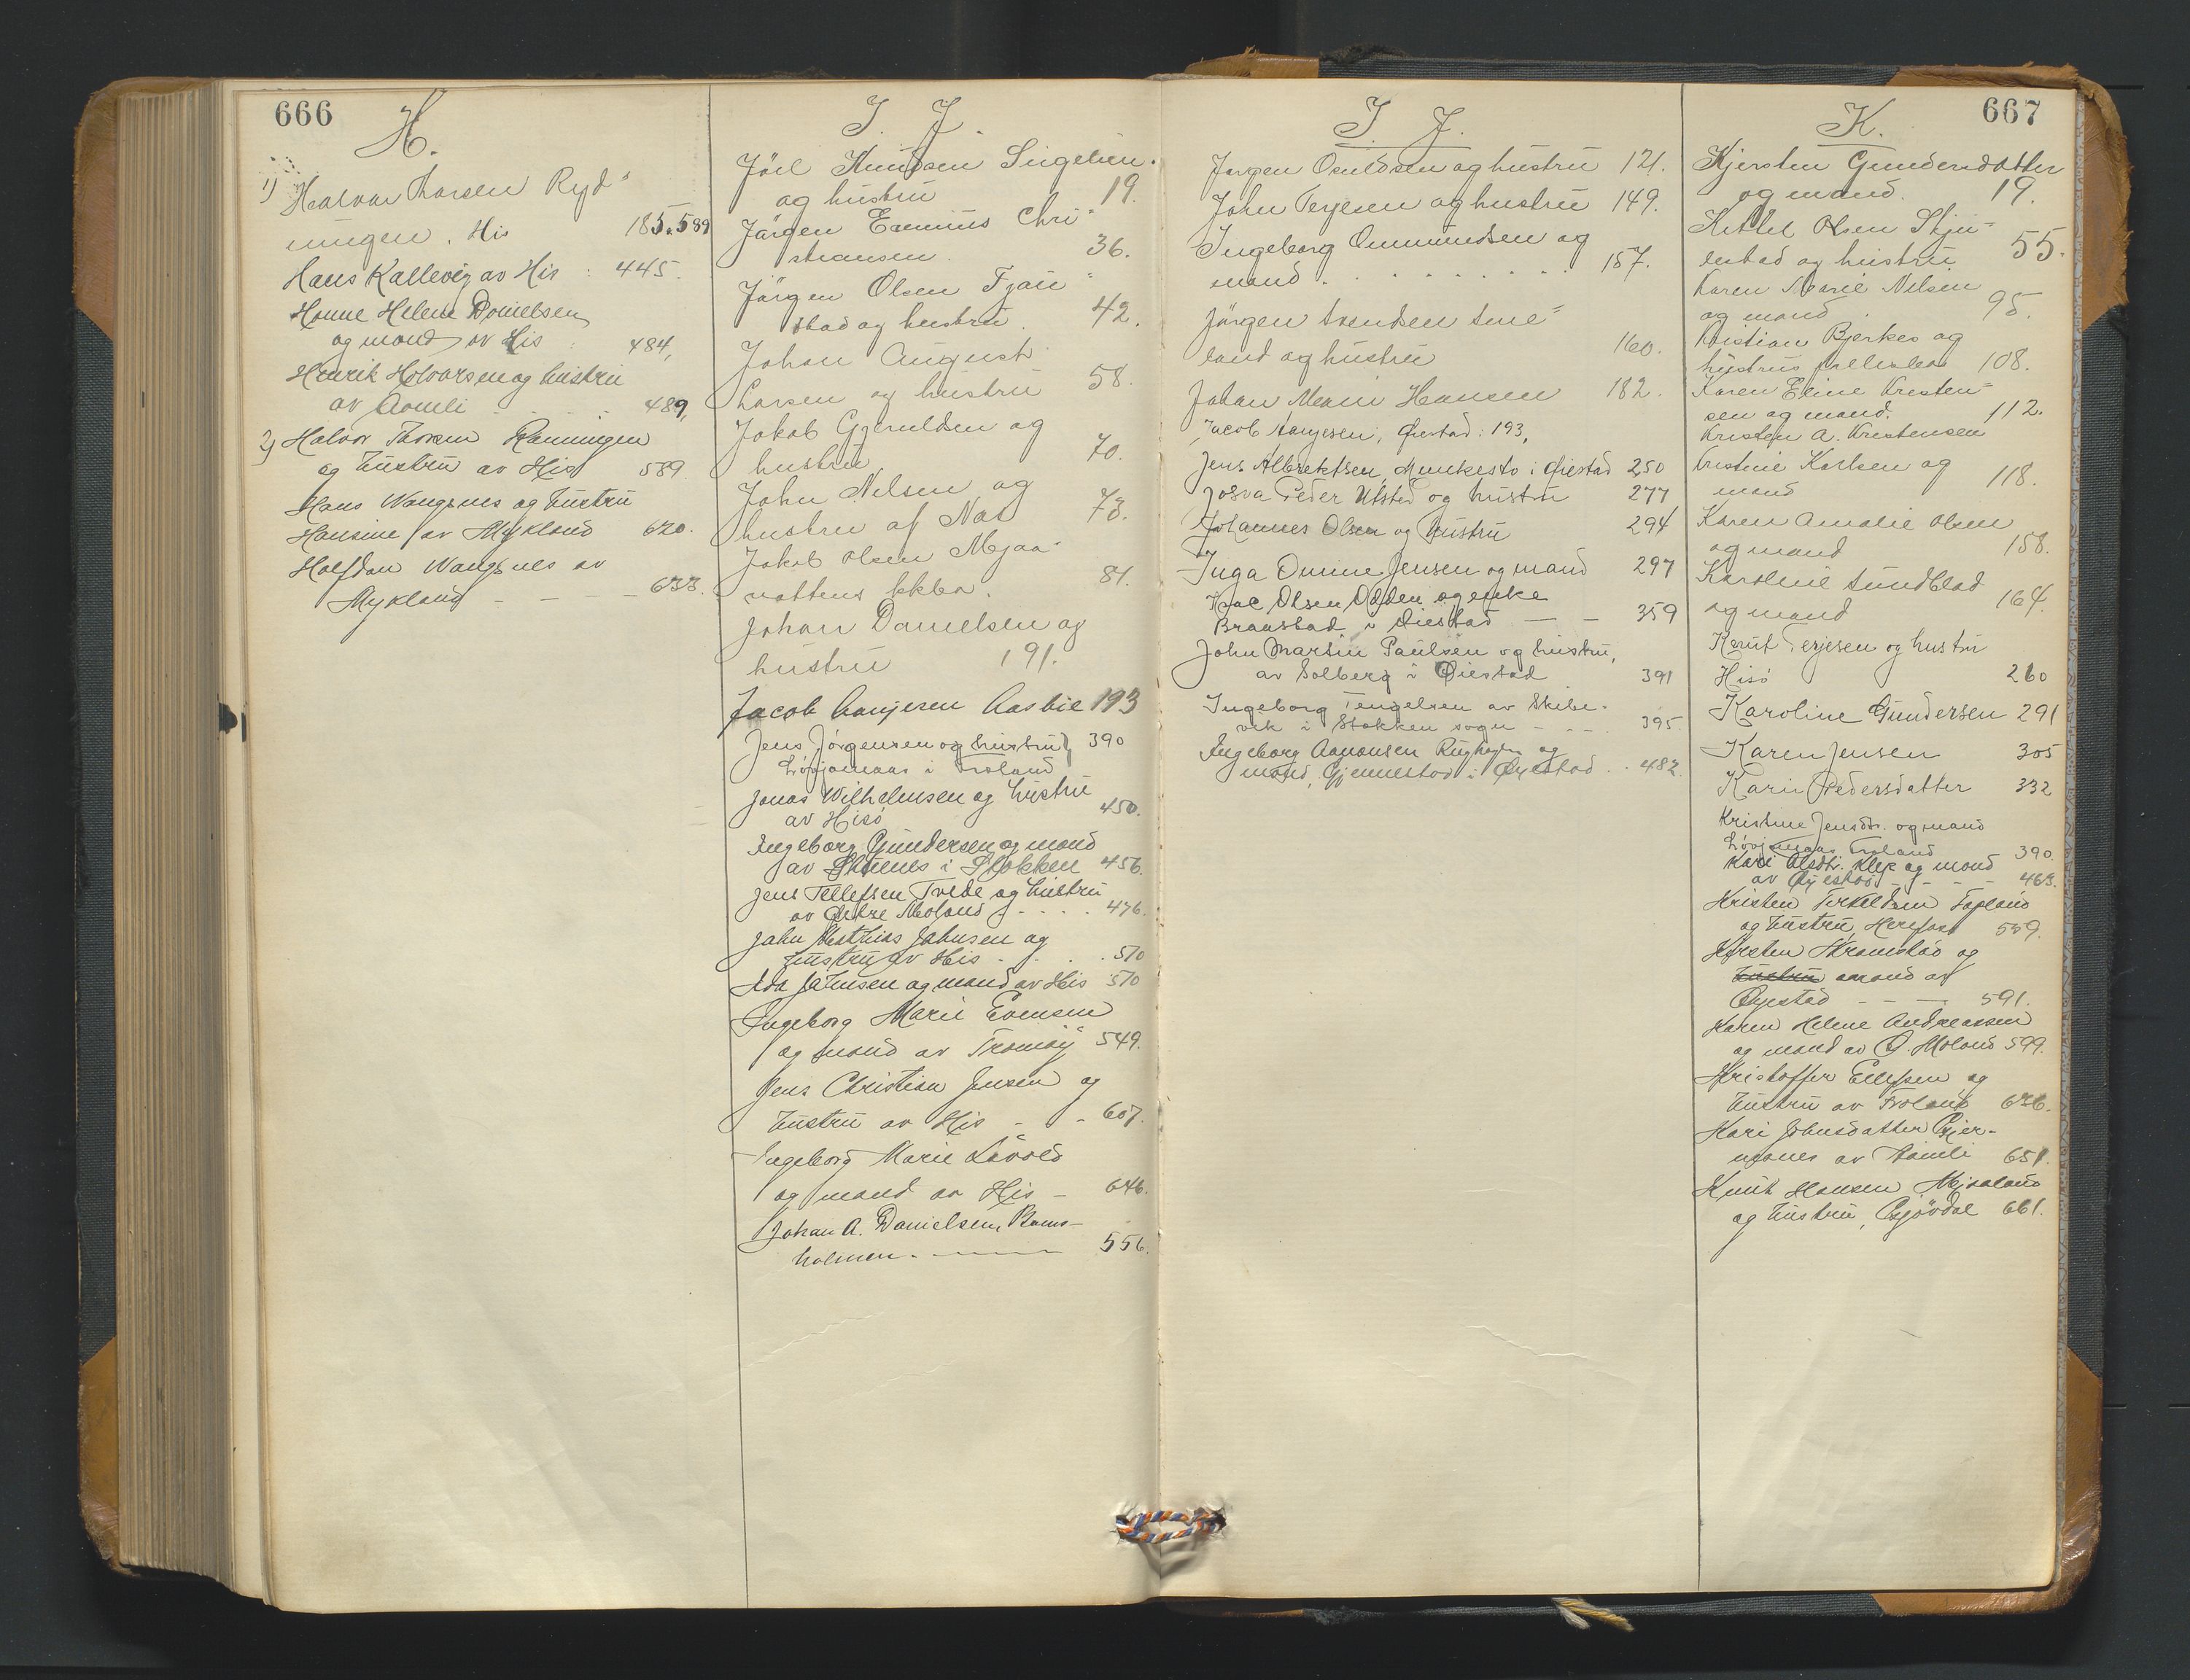 666
H.
1) Halvor Thorsen Ryd-
ningen, His 185.589
Hans Kallevig av His : 445.
Hanne Helene Danielsen
og mand av His : 484,
Henrik Halvorsen og hustru
av Aamli - - - - 489,
2) Halvor Thorsen Rønningen
og hustru av His 589
Hans Wangsnes og hustru
Hansine av Mykland 620.
Halfdan Wangsnes av
Mykland - - - - 633.
I. J.
Jöel Knudsen
og hustru 19.
Jörgen Erenius Chri-
stiansen. 36.
Jörgen Olsen Fjæu-
stad og hustru. 42.
Johan August
Larsen og hustru 58.
Jakob Gjeruldsen og
hustru 70.
John Nilsen og
hustru af Næs 73.
Jakob Olsen Mejaa-
vattens 81.
Johan Danielsen og
hustru 191.
Jacob Aanjesen Aasbie 193
Jens Jörgensen og hustru, 390
Lövjomaas i Froland
Jonas Wilhelmsen og hustru
av Hisö 450.
Ingeborg Gundersen og mand
av i Stokken 456.
Jens Tellefsen Tvede og hustru
av Østre Moland - . . . . 476.
John Mathias Johnsen og
hustru av His - . . . 510
Ida Johnsen og mand av His 510
Ingeborg Marie Evensen
og mand av Tromöy 549.
Jens Christian Jensen og
hustru av His - - 607.
Ingeborg Marie Lövold
og mand av His - 646.
Johan A. Danielsen, Rams-
holmen. - - - - 556.
667
I. J.
Jörgen Osuldsen og hustru 121.
John Terjesen og hustru 149.
Ingeborg Ommundsen og
mand . . . . . . . . 157.
Jörgen Svendsen Sme-
land og hustru 160.
Johan Hansen 182.
Jacob Aanjesen, Øiestad: 193,
Jens Albrektsen, Munkesto i Øiestad 250
Josva Peder Ulsted og hustru 277
Johannes Olsen og hustru 294
Inga Omine Jensen og mand 297
Isac Olsen Odden og enke
Braastad i Øiestad - - 359
John Martin Paulsen og hustru,
av Solberg i Øiestad 391
Ingeborg Tengelsen av Skibe-
vik i Stokken sogn - - - 395.
Ingeborg Aanonsen og
mand, Gjennestad i Øyestad . . 482.
K.
Kjersten Gundersdatter
og mand. 19.
Kittel Olsen Skju-
lestad og hustru 55.
Karen Marie Nilsen
og mand . 95.
Kristian Bjerkes og
hustrus fællesbo 108.
Karen Eline Kresten-
sen og mand. 112.
Kristen A. Kristensen
Kristine Karlsen og
mand 118.
Karen Amalie Olsen
og mand 158.
Karoline Sundblad
og mand 164.
Knut Terjesen og hustru
Hisö 260
Karoline Gundersen 291
Karen Jensen 305
Karin Pedersdatter 332
Kristine Jensdtr. og mand
Lövjomaas Froland 390.
Kari Olsdtr. Klep og mand
av Øyestad - - - - 463.
Kristen Terkildsen Topland
og hustru, Herefoss 559.
Kirsten Strømstad og
hustru mand av
Øyestad - - - 591.
Karen Helene Andreassen
og mand av Ø. Moland 599.
Kristoffer Ellefsen og
hustru av Froland 636.
Kari Johnsdatter Gjer-
mones av Aamli 651.
Knut Hansen Mjaaland
og hustru, Gjövdal 661.